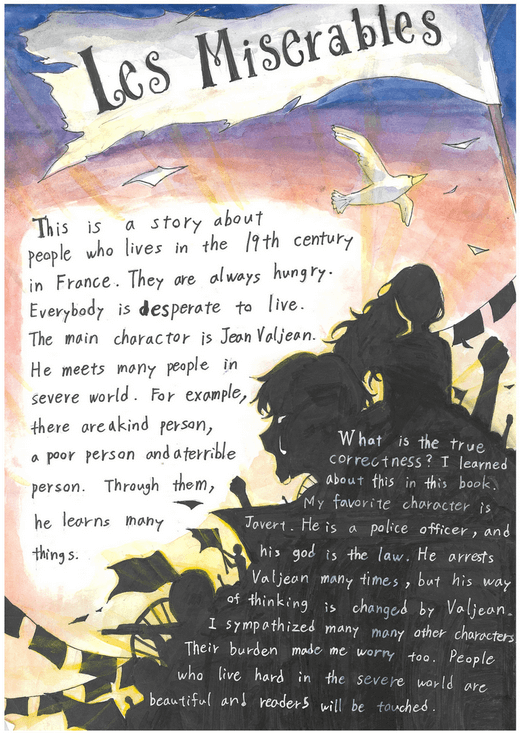 Les Miserables
This is a story about
people who lives in the 19th century
in France. They are always hungry.
Everybody is desperate to live.
The main charactor is Jean Valjean.
He meets many people in
severe world. For example,
there are a kind person,
a poor person and a terrible
person. Through them,
he learns many
things.
What is the true
correctness? I learned
about this in this book.
My favorite character is
Javert. He is a police officer, and
his god is the law. He arrests
Valjean many times, but his way
of thinking is changed by Valjean.
I sympathized many many other characters
Their burden made me worry too. People
who live hard in the severe world are
beautiful and readers will be touched.